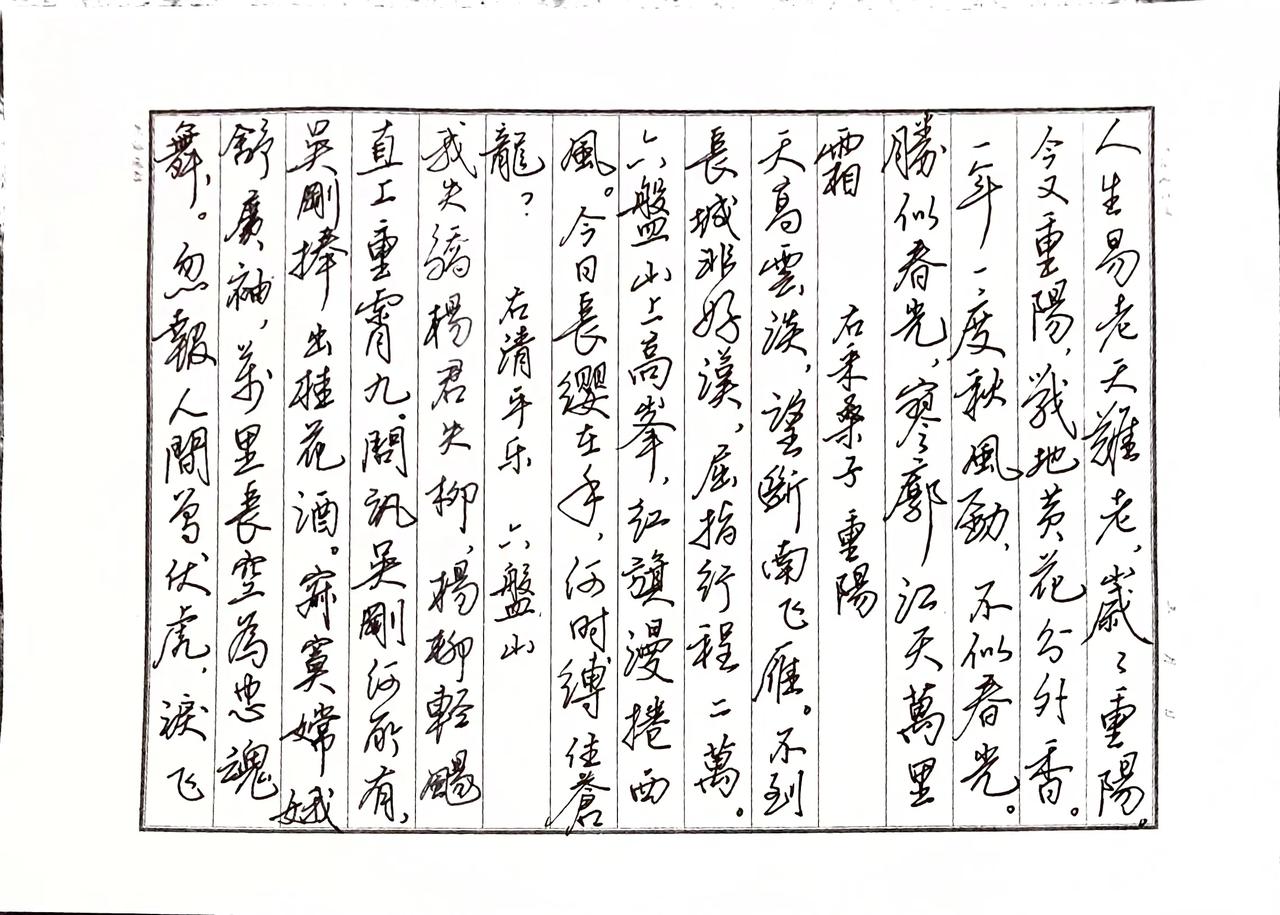 人生易老天難老，歲々重陽。
今又重陽，戰地黄花分外香。
一年一度秋風勁，不似春光。
勝似春光，寥廓江天萬里
霜 右采桑子 重陽
天高雲淡，望斷南飞雁。不到
長城非好漢，屈指行程二萬。
六盤山上高峯，红旗漫捲西
風。今日長纓在手，何时縛住蒼
龍？ 右清平乐 六盤山
我失驕楊君失柳，楊柳輕颺
直上重霄九。問訊吳剛何所有，
吳剛捧出桂花酒。寂寞嫦娥
舒廣袖，万里長空為忠魂
舞，。忽報人間曾伏虎，淚飞